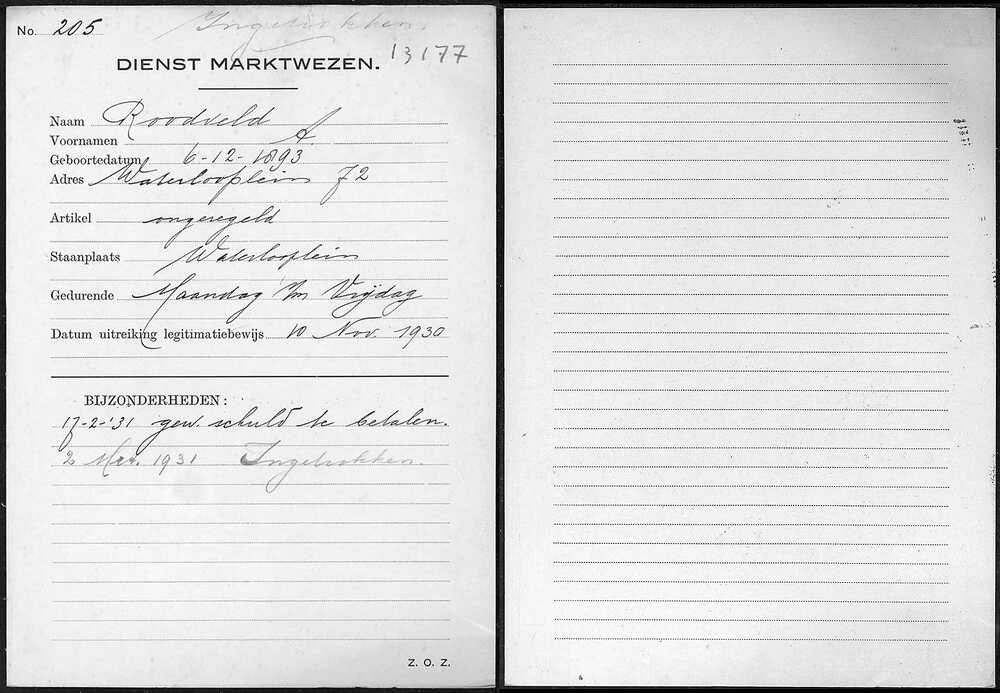 No. 205 Ingetrokken.
13177
DIENST MARKTWEZEN.
Naam Roodveld
Voornamen A.
Geboortedatum 6-12-1893
Adres Waterlooplein 72
Artikel ongeregeld
Staanplaats Waterlooplein
Gedurende Maandag t/m Vrijdag
Datum uitreiking legitimatiebewijs 10 Nov. 1930
BIJZONDERHEDEN:
17-2-'31 gew. schuld te betalen.
2 Mrt. 1931 Ingetrokken.
Z. O. Z.